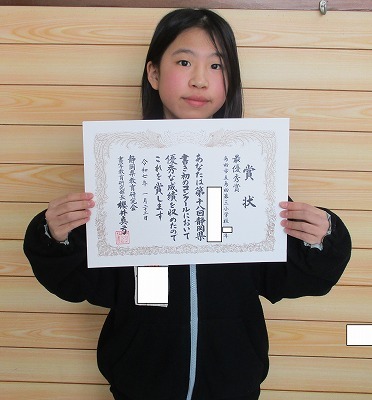 賞状
最優秀賞
島田市立島田第三小学校
年
あなたは第十八回静岡県
書き初めコンクールにおいて
優秀な成績を収めたので
これを賞します
令和七年一月二十三日
静岡県教育研究会
書写教育研究部長